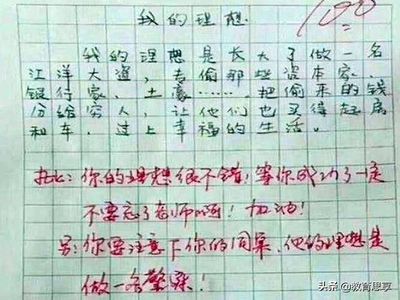 我的理想.
100
我的理想是长大了做一名
江洋大盗，去偷那些资本家.
银行家.土豪……把偷来的钱
分给穷人，让他们也买得起房
和车，过上幸福的生活。
批：你的理想很不错！等你成功了一定
不要忘了老师啊！加油！
另：你要注意下你的同桌，他的理想是
做一名警察！
头条@教育思享